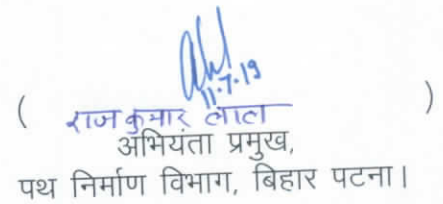 11.7.19
( राज कुमार लाल )
अभियंता प्रमुख,
पथ निर्माण विभाग, बिहार पटना।